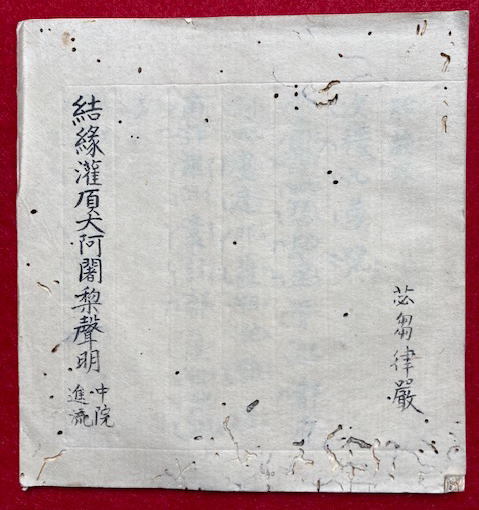 苾芻律嚴
結緣灌頂大阿闍梨聲明
中院
進流